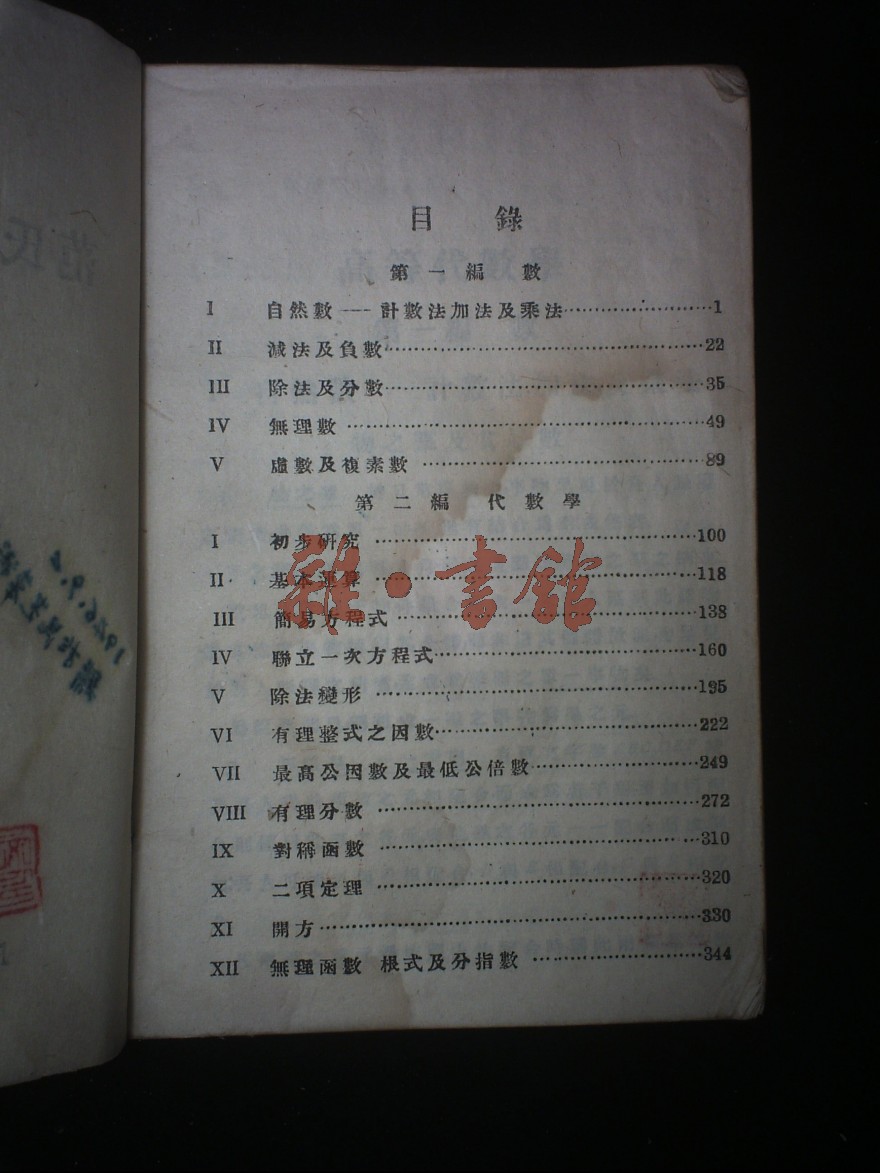 范氏
1956.9.4
目錄
第一編 數
I 自然數──計數法加法及乘法……………………1
II 減法及負數……………………22
III 除法及分數……………………35
IV 無理數……………………49
V 虛數及複素數……………………89
第二編 代數學
I 初步研究……………………100
II 基本運算……………………118
III 簡易方程式……………………138
IV 聯立一次方程式……………………160
V 除法變形……………………195
VI 有理整式之因數……………………222
VII 最高公因數及最低公倍數……………………249
VIII 有理分數……………………272
IX 對稱函數……………………310
X 二項定理……………………320
XI 開方……………………330
XII 無理函數 根式及分指數……………………344
雜·書館